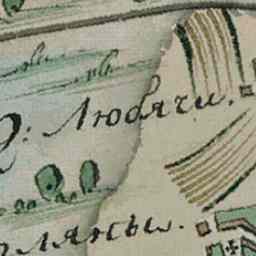 : Любячи.
ляны.